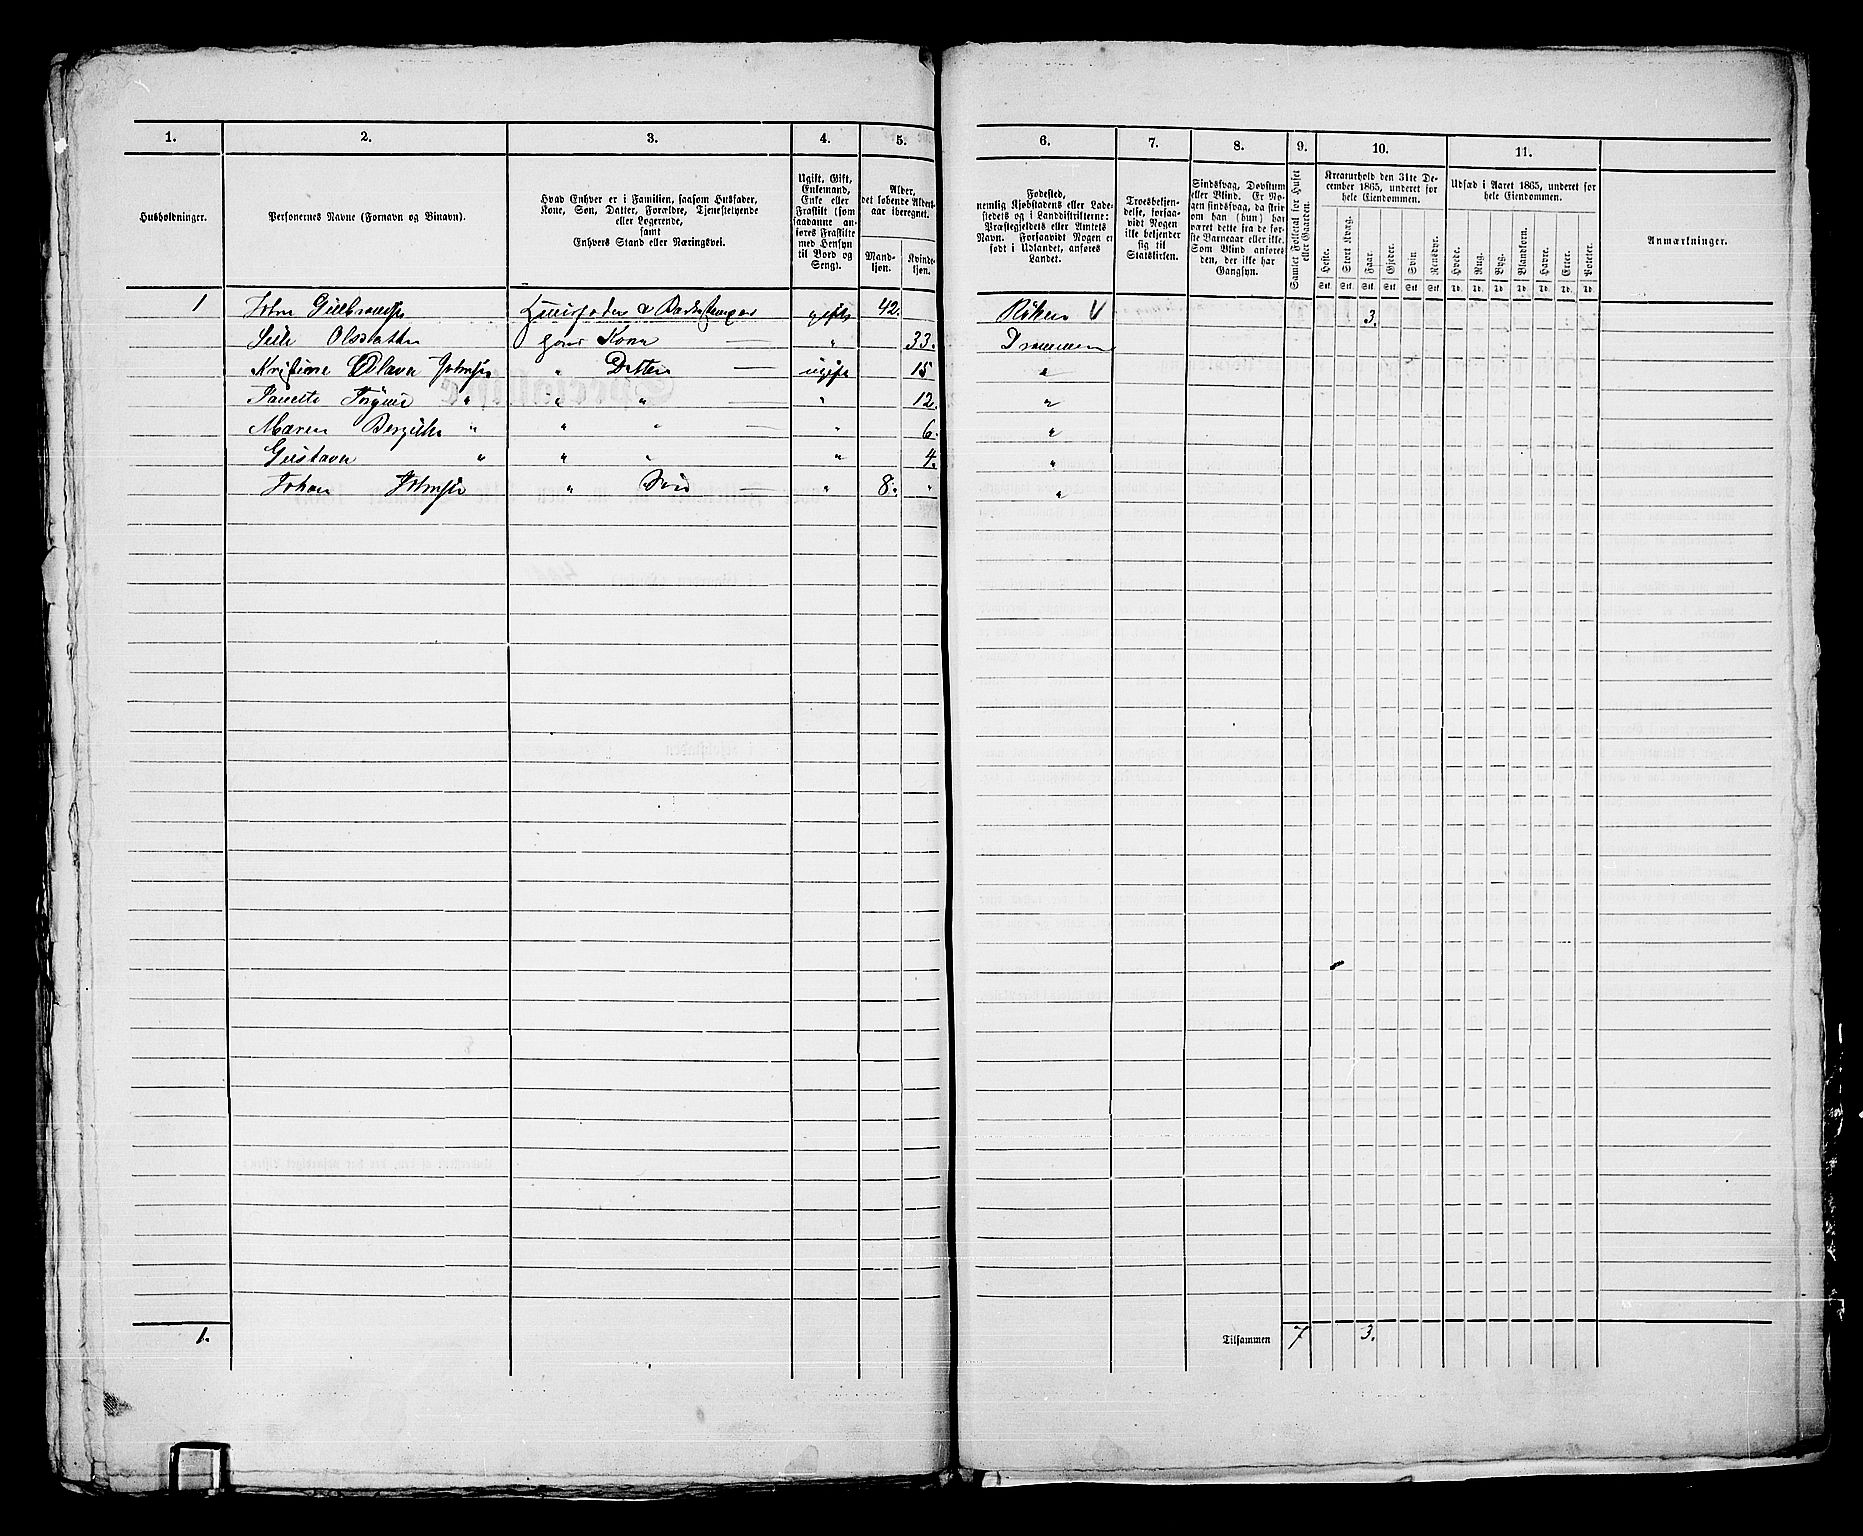 1. 2. 3. 4. 5. 6. 7. 8. 9. 10. 11.
Husholdninger.
Personernes Navne (Fornavn og Binavn).
Hvad Enhver er i Familien, saasom Husfader,
Kone, Søn, Datter, Forældre, Tjenestetyende
eller Logerende,
samt
Enhvers Stand eller Næringsvei.
Ugift, Gift,
Enkemand,
Enke eller
Fraskilt (som
saadanne an-
føres Fraskilte
med Hensyn
til Bord og
Seng).
Alder,
det løbende Alders-
aar iberegnet.
Mand-
kjøn.
Kvinde-
kjøn.
Fødested,
nemlig Kjøbstadens eller Lade-
stedets og i Landdistrikterne:
Præstegjeldets eller Amtets
Navn. Forsaavidt Nogen er
født i Udlandet, anføres
Landet.
Troesbekjen-
delse, forsaa-
vidt Nogen
ikke bekjender
sig til
Statskirken.
Sindssvag, Døvstum
eller Blind. Er No-
gen sindssvag, da skri-
ves, om han (hun) har
været dette fra de før-
ste Barneaar eller ikke.
Som Blind anføres
den, der ikke har
Gangsyn.
Samlet Folketal for Huset
eller Gaarden.
Kreaturhold den 31te De-
cember 1865, underet for
hele Eiendommen.
Heste. Stort Kvæg. Faar. Gjeder. Svin Rensdyr.
Stk. Stk. Stk. Stk. Stk. Stk.
Udsæd i Aaret 1865, underet for
hele Eiendommen.
Hvede. Rug. Byg. Blandkorn. Havre. Erter. Poteter.
Td. Td. Td. Td. Td. Td. Td.
Anmærkninger.
1 John Gulbrands. Huusfader & gift 42. Røken V 3.
Olsdatter hans Kone " 33. Drammen
Kristine Olava Johnsn " Datter ugift 15 "
" " " " 12. "
Maren " " " " 6. "
Gustava " " " " 4. "
Johan Johnsn " Søn " 8. " "
1.
Tilsammen 7 3.